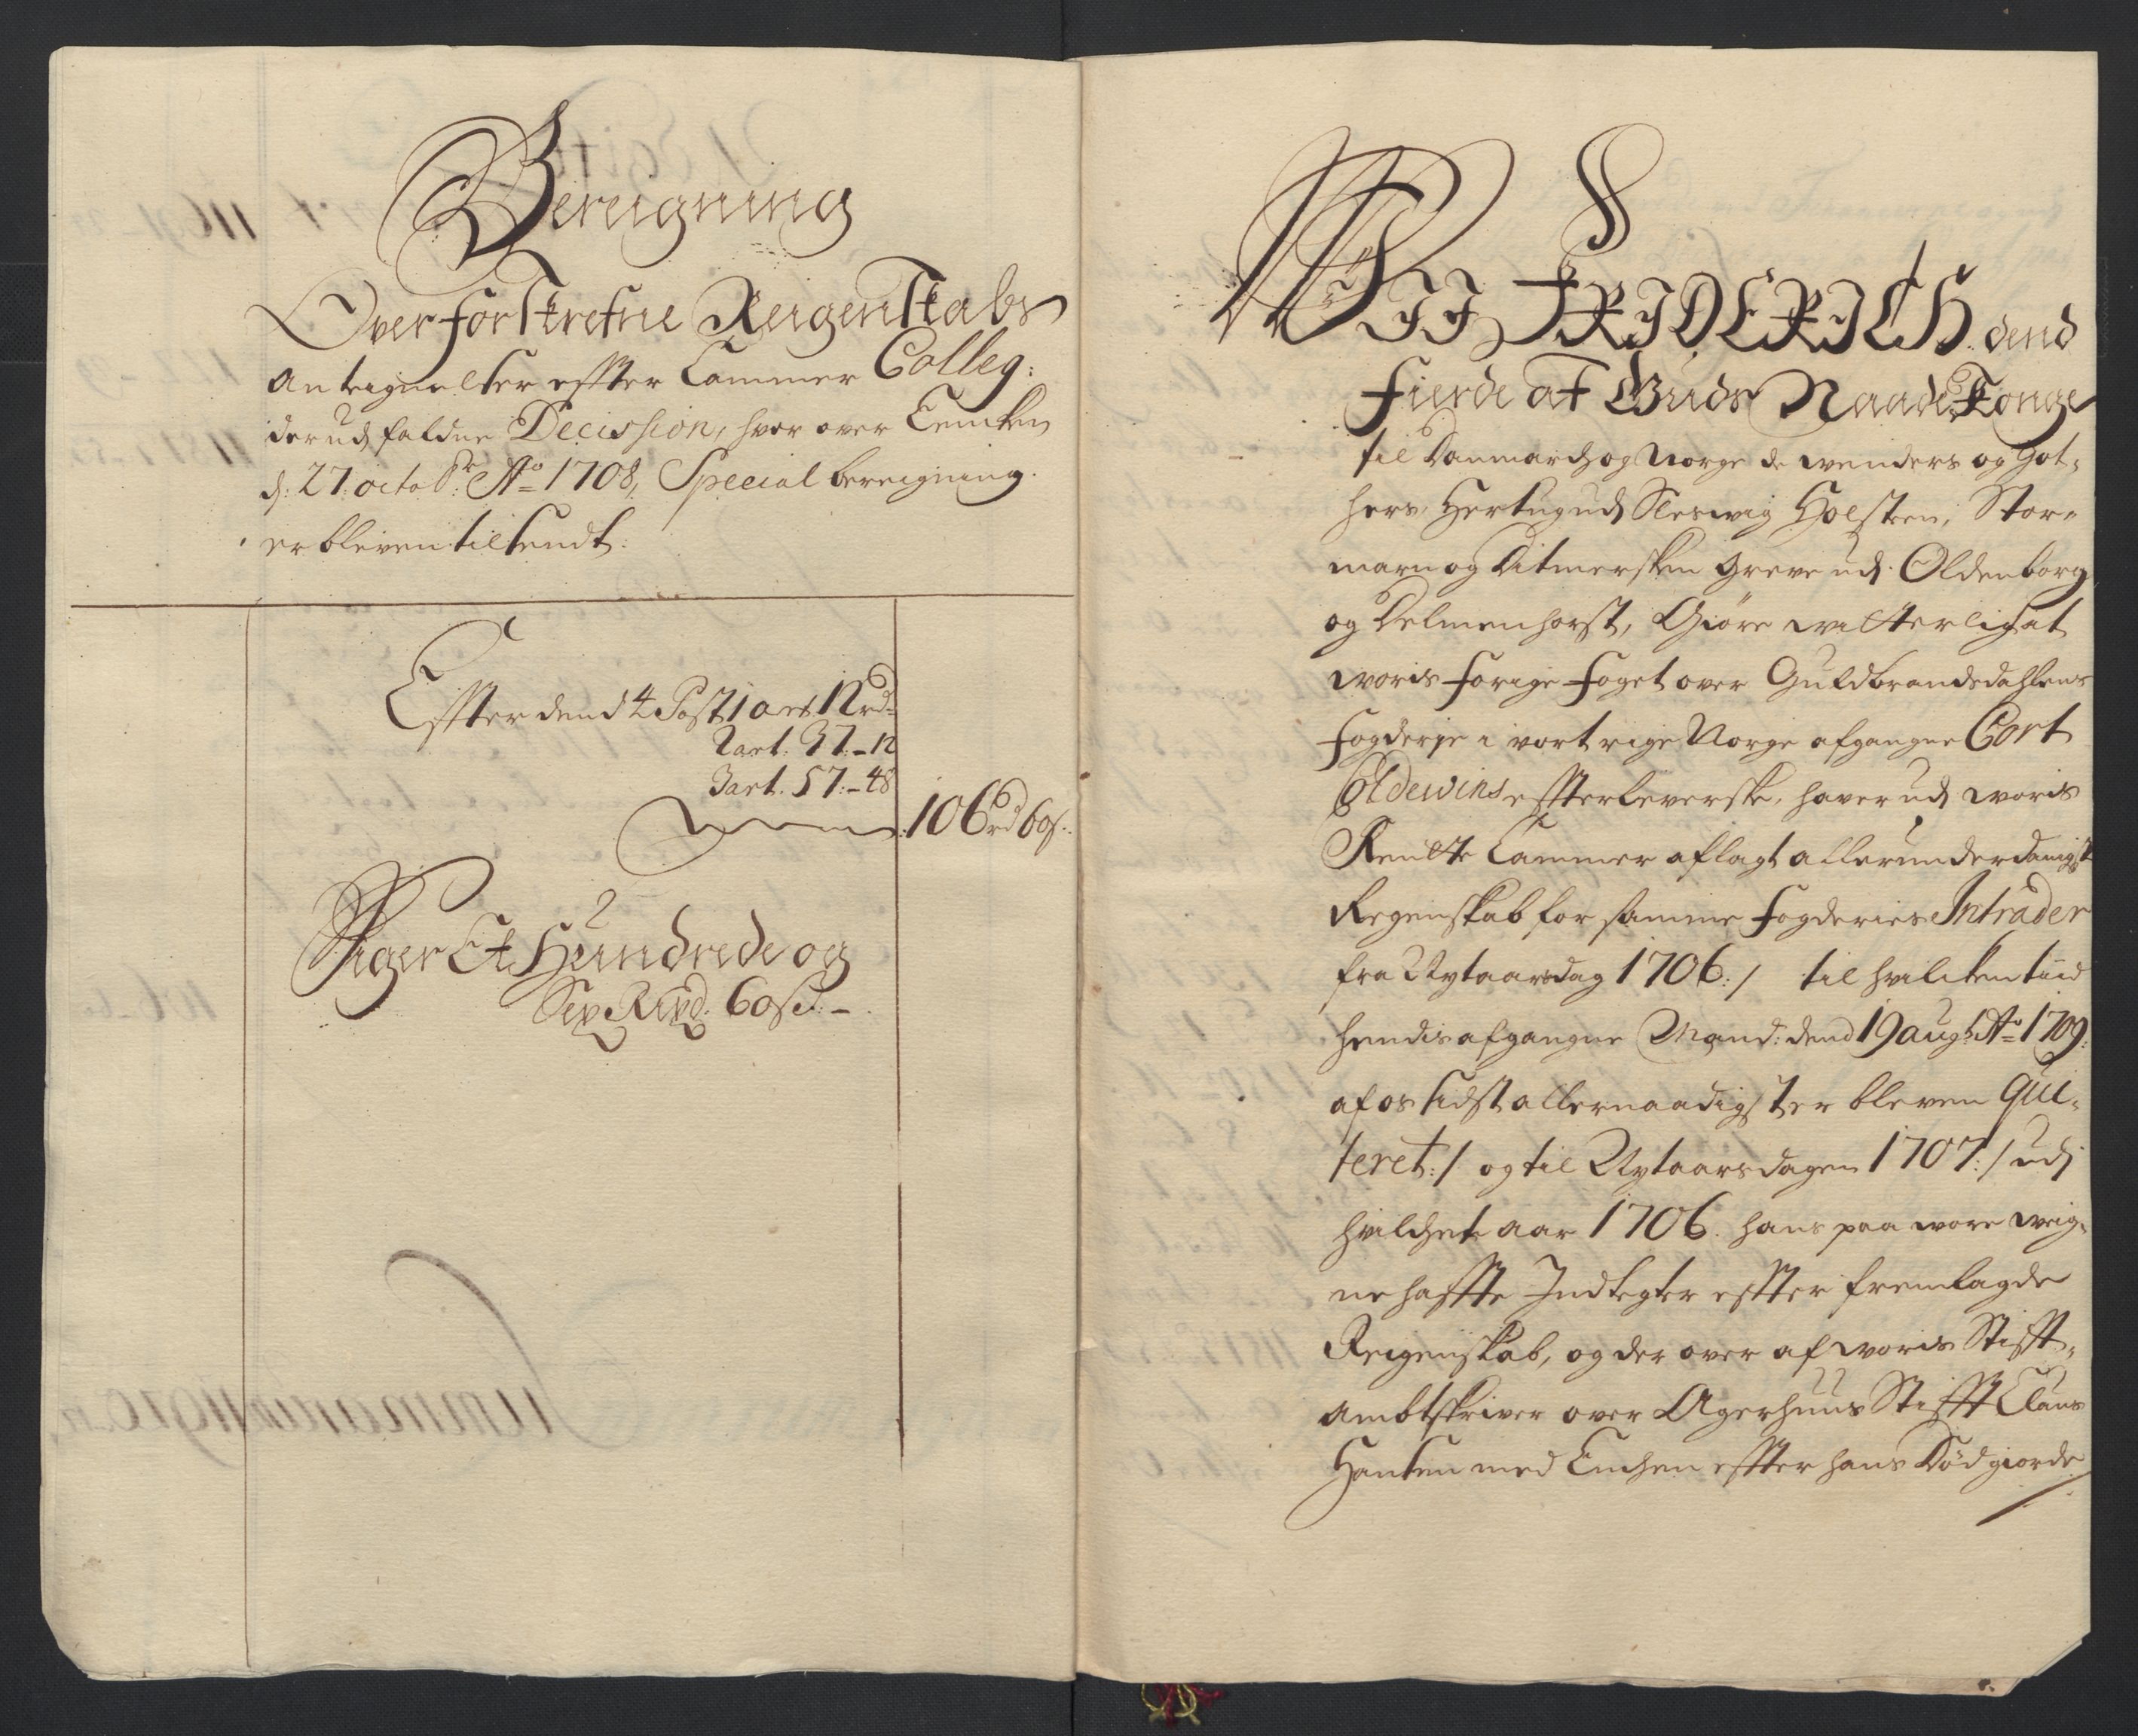 Bereigning
Over forskrefne Reigenskabs
Anteignelser effter Cammer Colleg:
derudj faldne Decission, hvor over Encken
d: 27: octobr: Ao 1708, Special bereigning
er bleven tilsendt.
Effter dend 4 Post 1 art 12 rd
2 art. 37:-12
3 art. 57:-48
106 rd 60 s.
Siger Et Hundrede og
Sex Rixd. 60 s:-
WII FRIDERICH dend
Fierde af Guds Naade Konge
til Danmarch og Norge de Wenders og Got-
hers, Hertug udj Slesvig Holsten, Stor-
marn og Ditmersken Greve udj Oldenborg
og Delmenhorst, Giøre witterligt at
woris forige foget over Guldbrandsdahlens
fogderje i vort rige Norge afgangne Cort
Coldewins effterleverske, haver udj woris
Rentte Cammer aflagt allerunderdanigst
Regenskab for samme fogderies Intrader
fra Nytaarsdag 1706:/ til hvilcken tiid
hendis afgangne Mand: dend 19 augt Ao 1709:
af os sidst allernaadigst er bleven qui-
teret:/ og til Nytaarsdagen 1707:/ udj
hvilchet aar 1706. hans paa wore weig-
ne haffte Indtegter effter fremlagde
Reigenskab, og der over af woris Stifft-
ambtskriver over Agerhuus Stifft Claus
Hansen med Enchen effter hans Død giorde